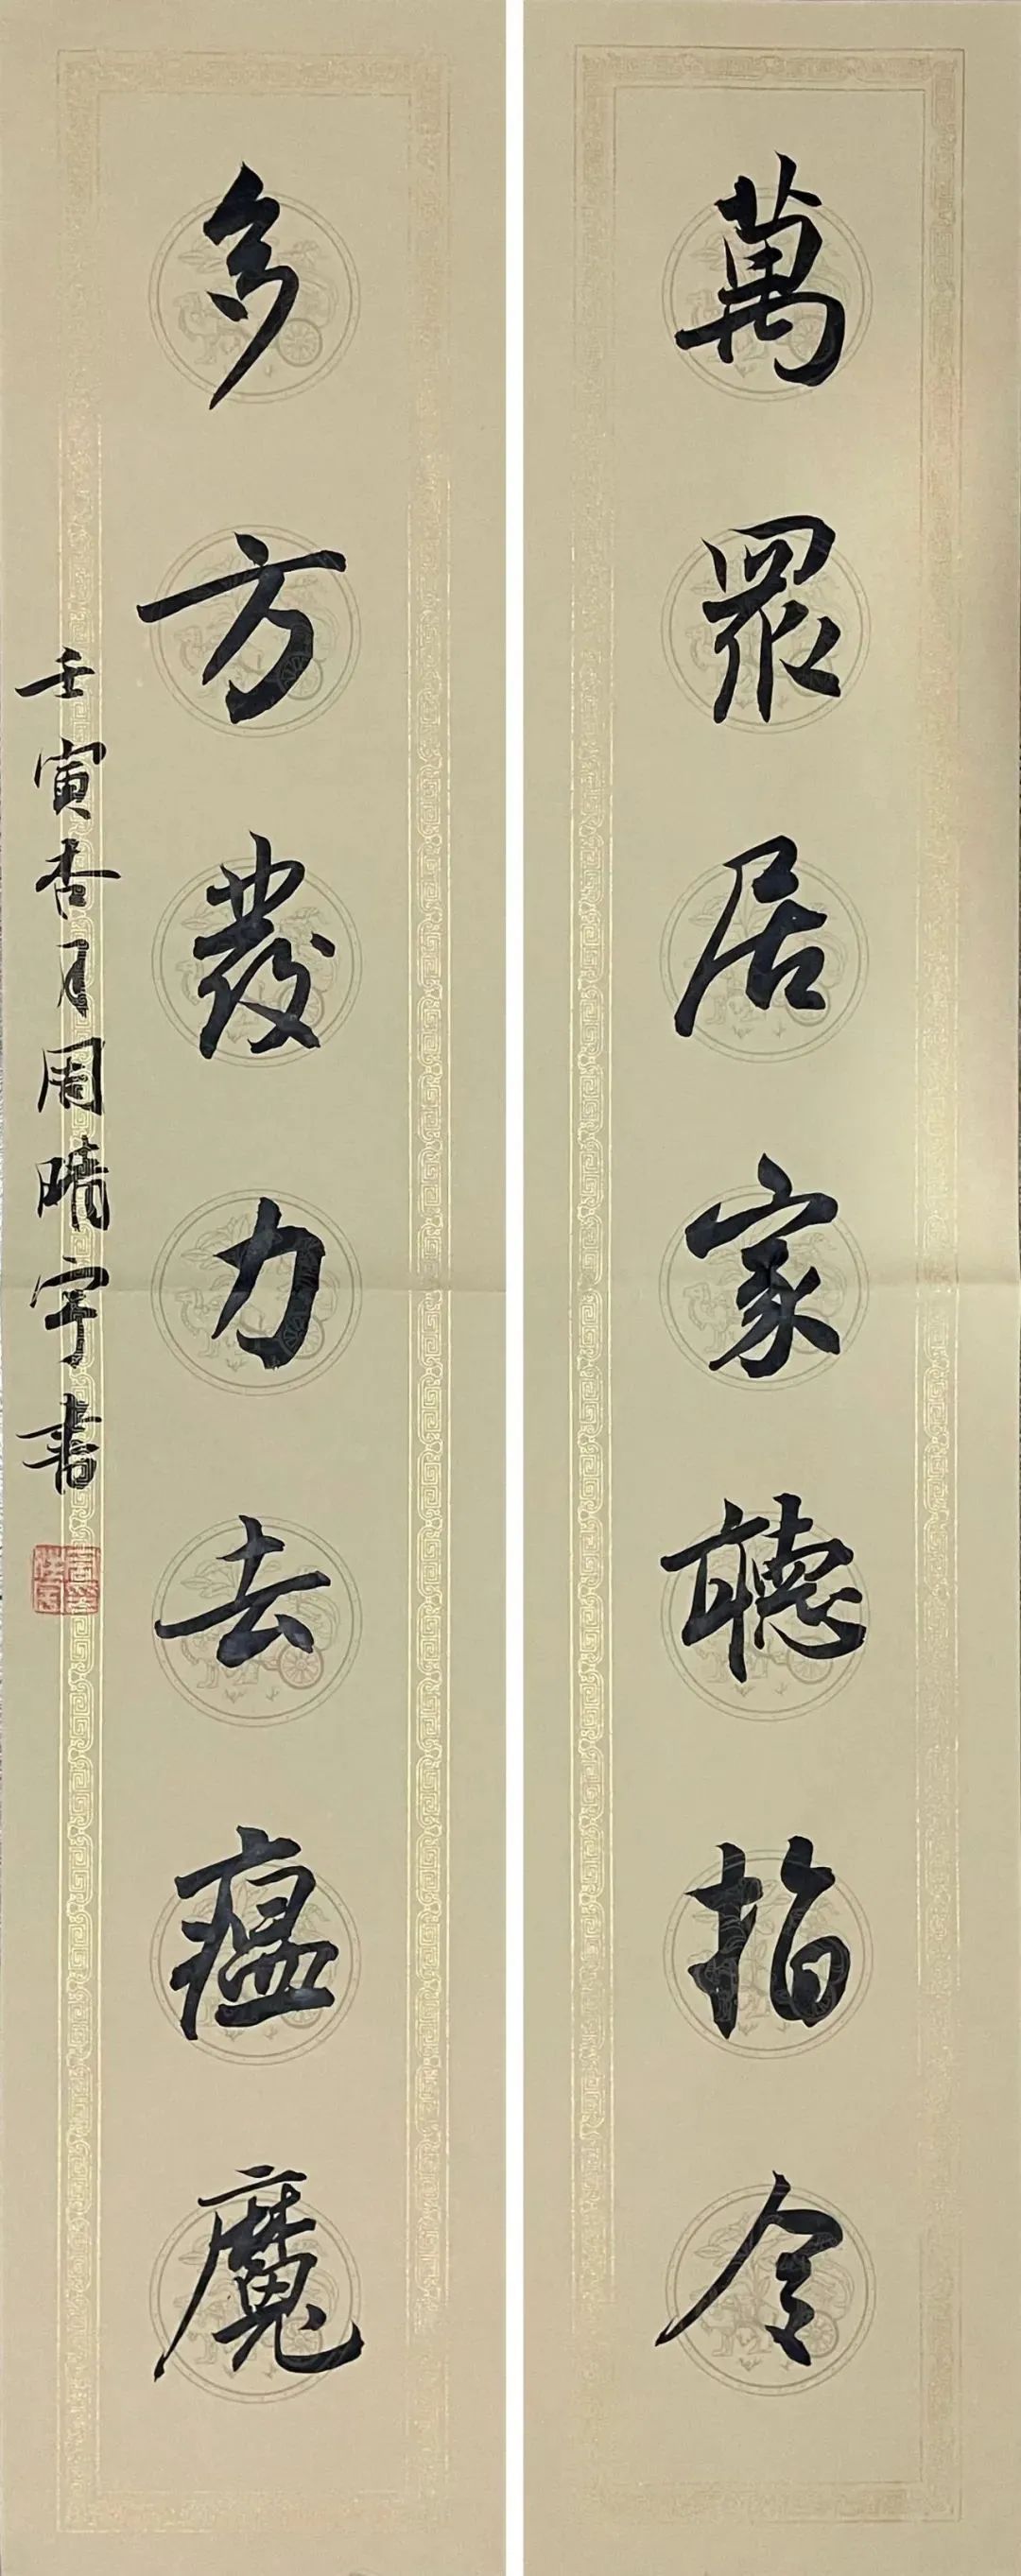 萬眾居家聽指令
多方發力去瘟魔
壬寅杏月周晴宇書